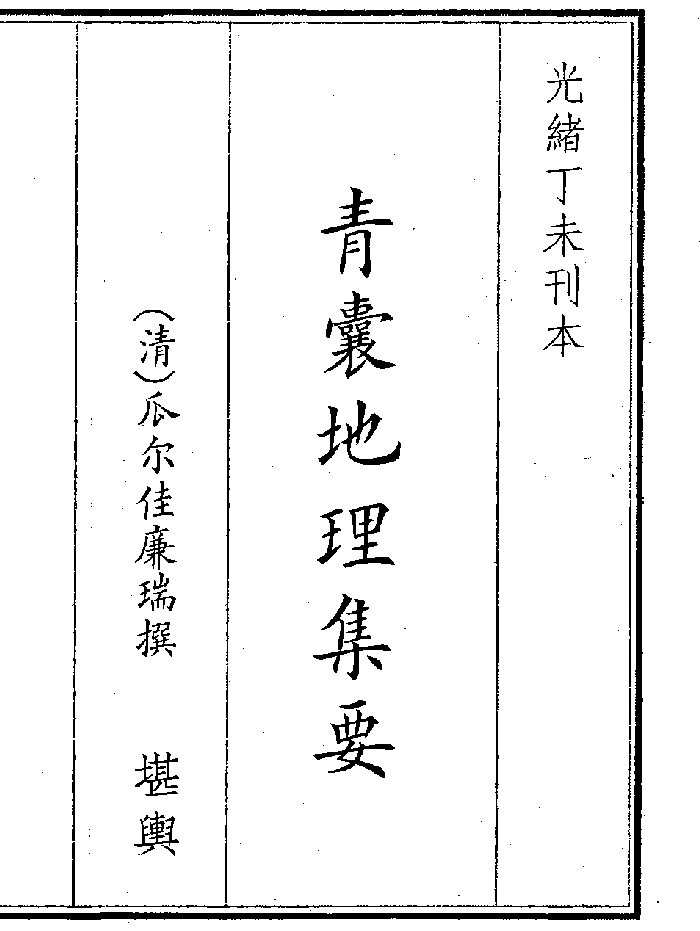 光緒丁未刊本
青囊地理集要
(清)瓜尔佳廉瑞撰　堪輿